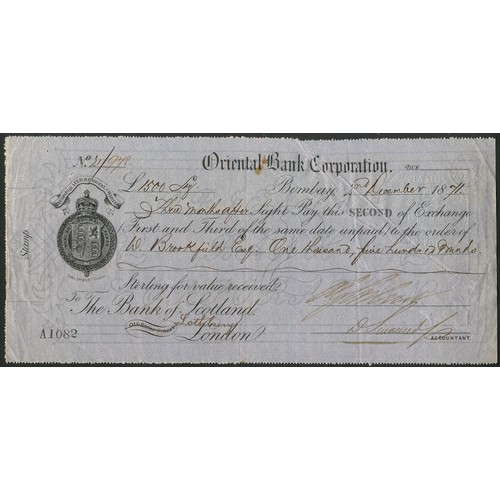 No. 21/979. Oriental Bank Corporation. DUE
£1500 Stg. Bombay December 1871.
Stamp
Three months after Sight Pay this SECOND of Exchange
First and Third of the same date unpaid to the order of
W. Brookfield Esq. One thousand, five hundred Pounds
Sterling for value received
To The Bank of Scotland
Lothbury
London
A1082
ACCOUNTANT